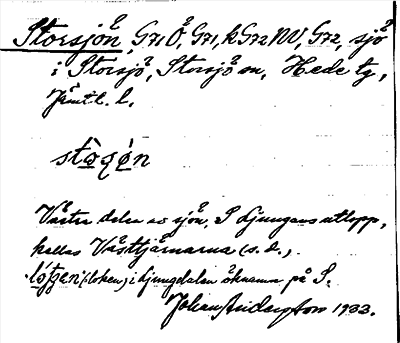 Storsjön, G71Ö, G71, k G72 NV, G72, sjö
i Storsjö, Storsjö sn, Hede tg,
Jämtl. l.
stògọ́n
Västra delen av sjön, S Ljungans utlopp,
kallas Västtjärnarna (s. d.).
(: loken) i Ljungdalen öknamn på S.
Johan Anderson 1933.